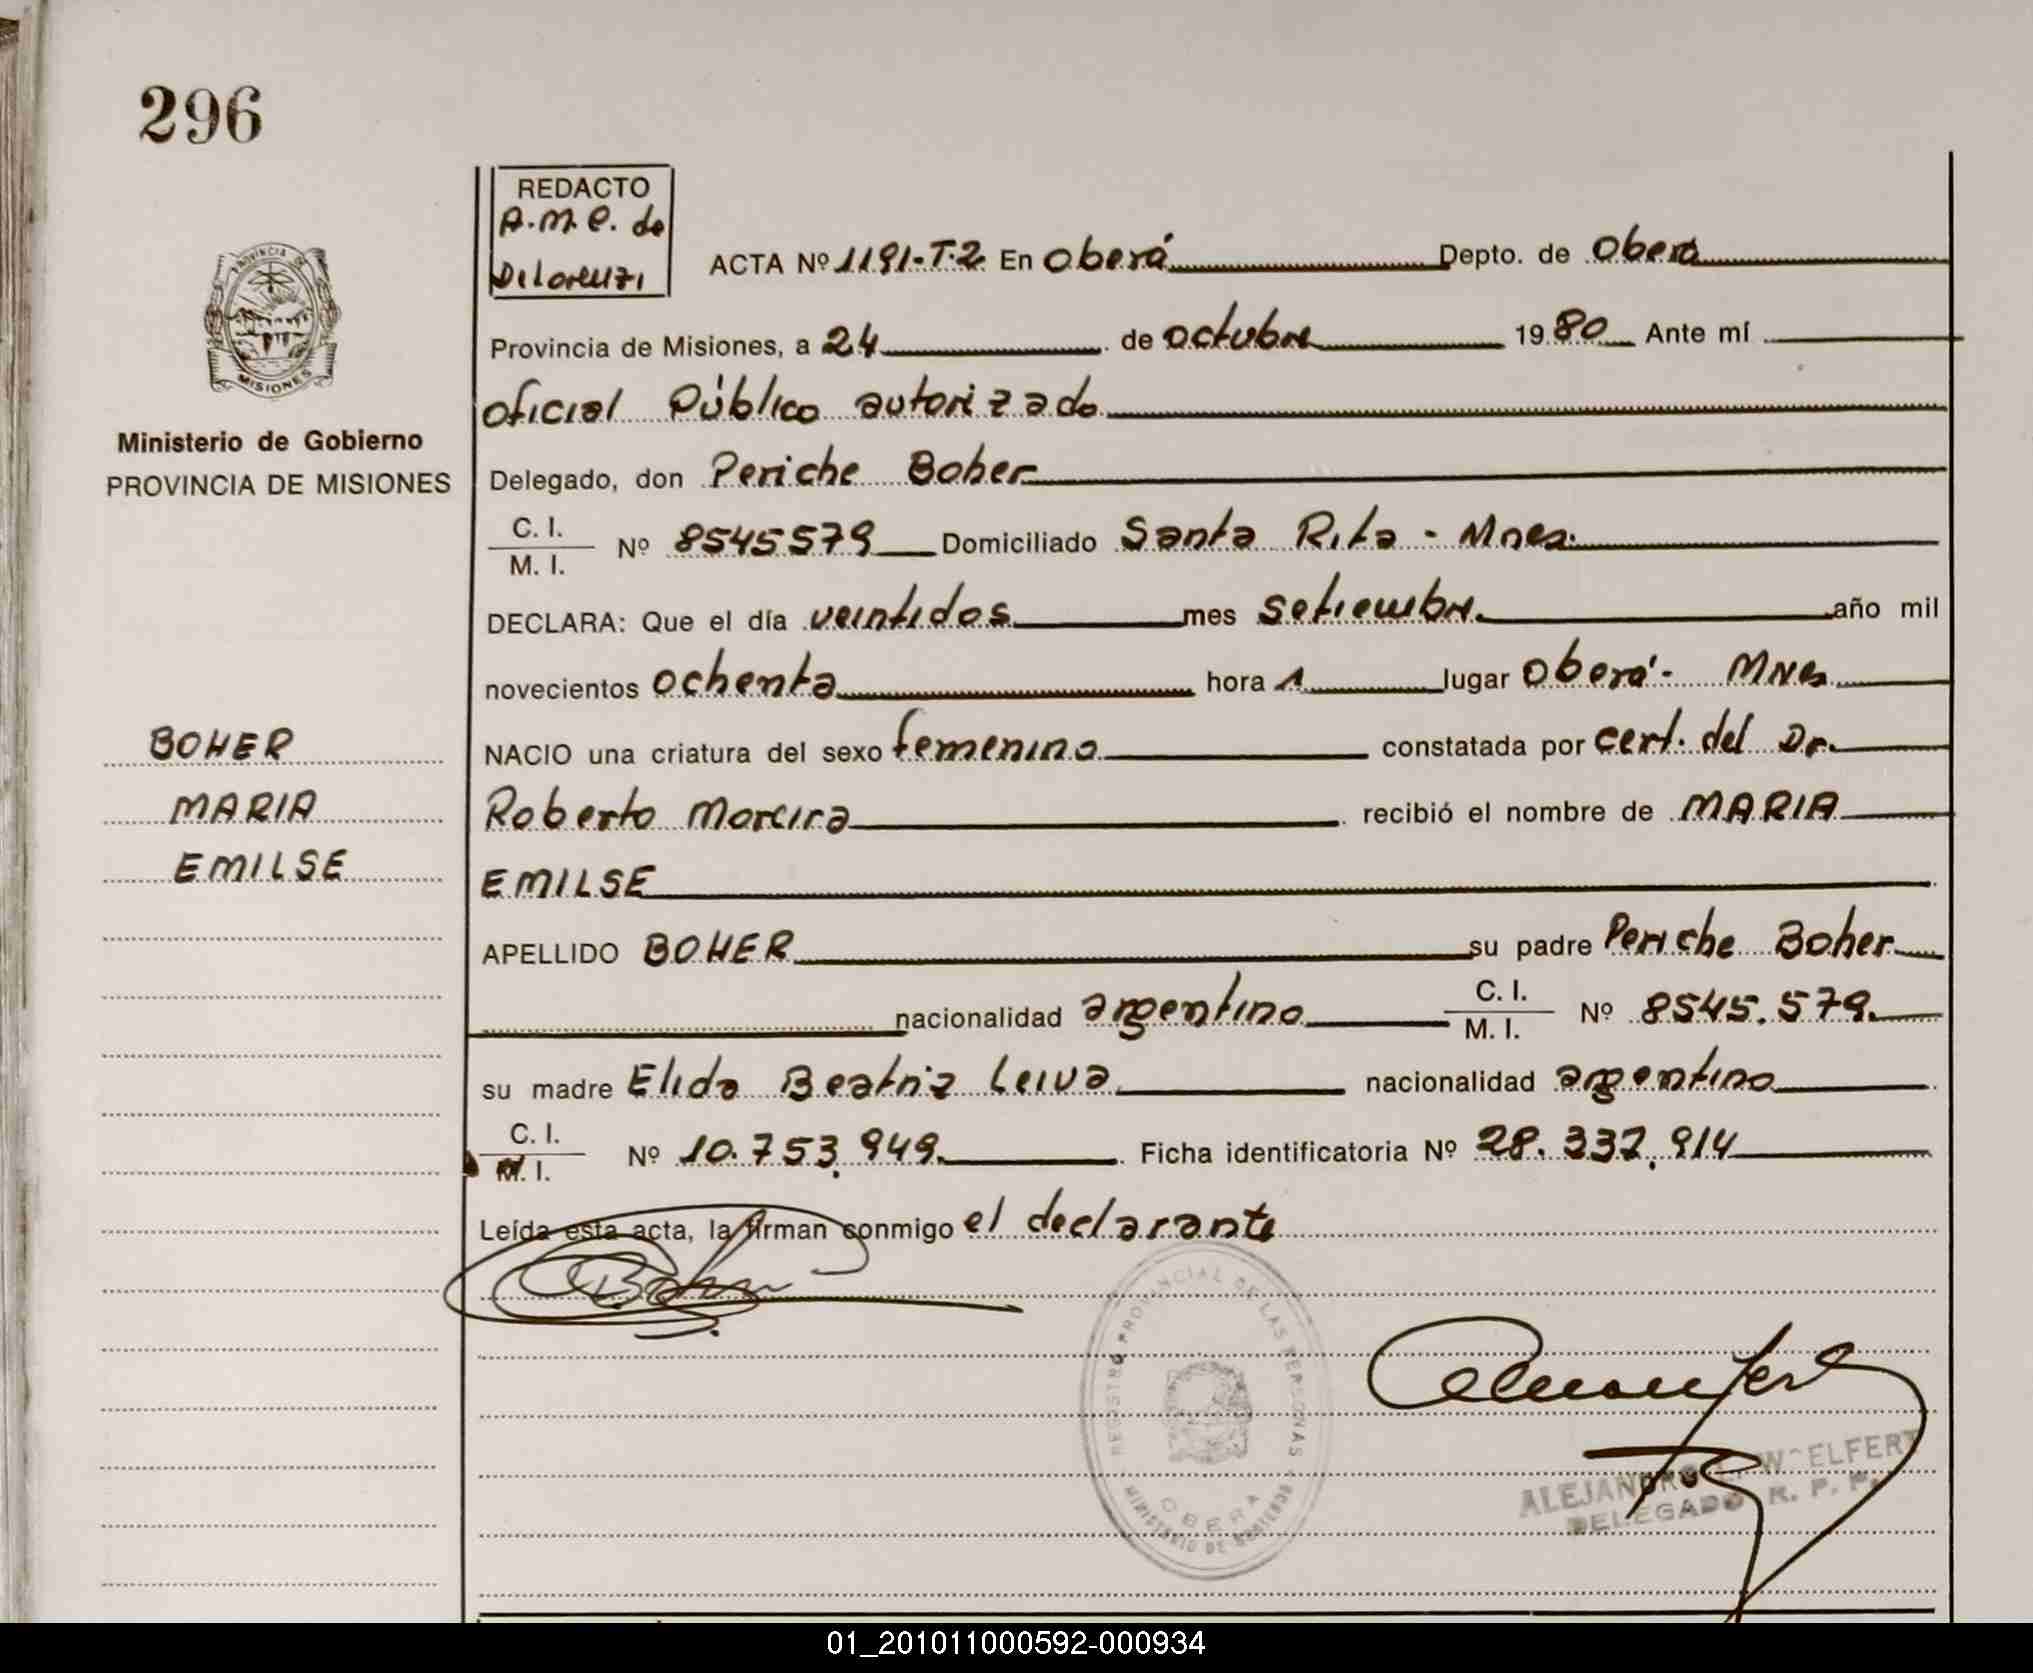 296
REDACTO
A.M.C. de
Delorenzi
ACTA Nº 1191-T.2. En Oberá Depto. de Oberá
PROVINCIA DE
MISIONES
Provincia de Misiones, a 24 de octubre 1980 Ante mí
oficial Público autorizado
Ministerio de Gobierno
PROVINCIA DE MISIONES
Delegado, don Periche Boher
C. I.
M. I. Nº 8545579 Domiciliado Santa Rita - Mnes.
DECLARA: Que el día veintidos mes setiembre año mil
novecientos ochenta hora 1 lugar Oberá - Mnes
BOHER
MARIA
EMILSE
NACIO una criatura del sexo femenino constatada por cert. del Dr.
Roberto Moreira recibió el nombre de MARIA
EMILSE
APELLIDO BOHER su padre Periche Boher
nacionalidad argentino C. I.
M. I. Nº 8545.579.
su madre Elida Beatriz Leiva nacionalidad argentino
C. I.
M. I. Nº 10.753.949. Ficha identificatoria Nº 28.337.914
Leída esta acta, la firman conmigo el declarante
REGISTRO PROVINCIAL DE LAS PERSONAS
OBERA
MINISTERIO DE GOBIERNO
ALEJANDRO ELFERT
DELEGADO R. P. P.
01_201011000592-000934